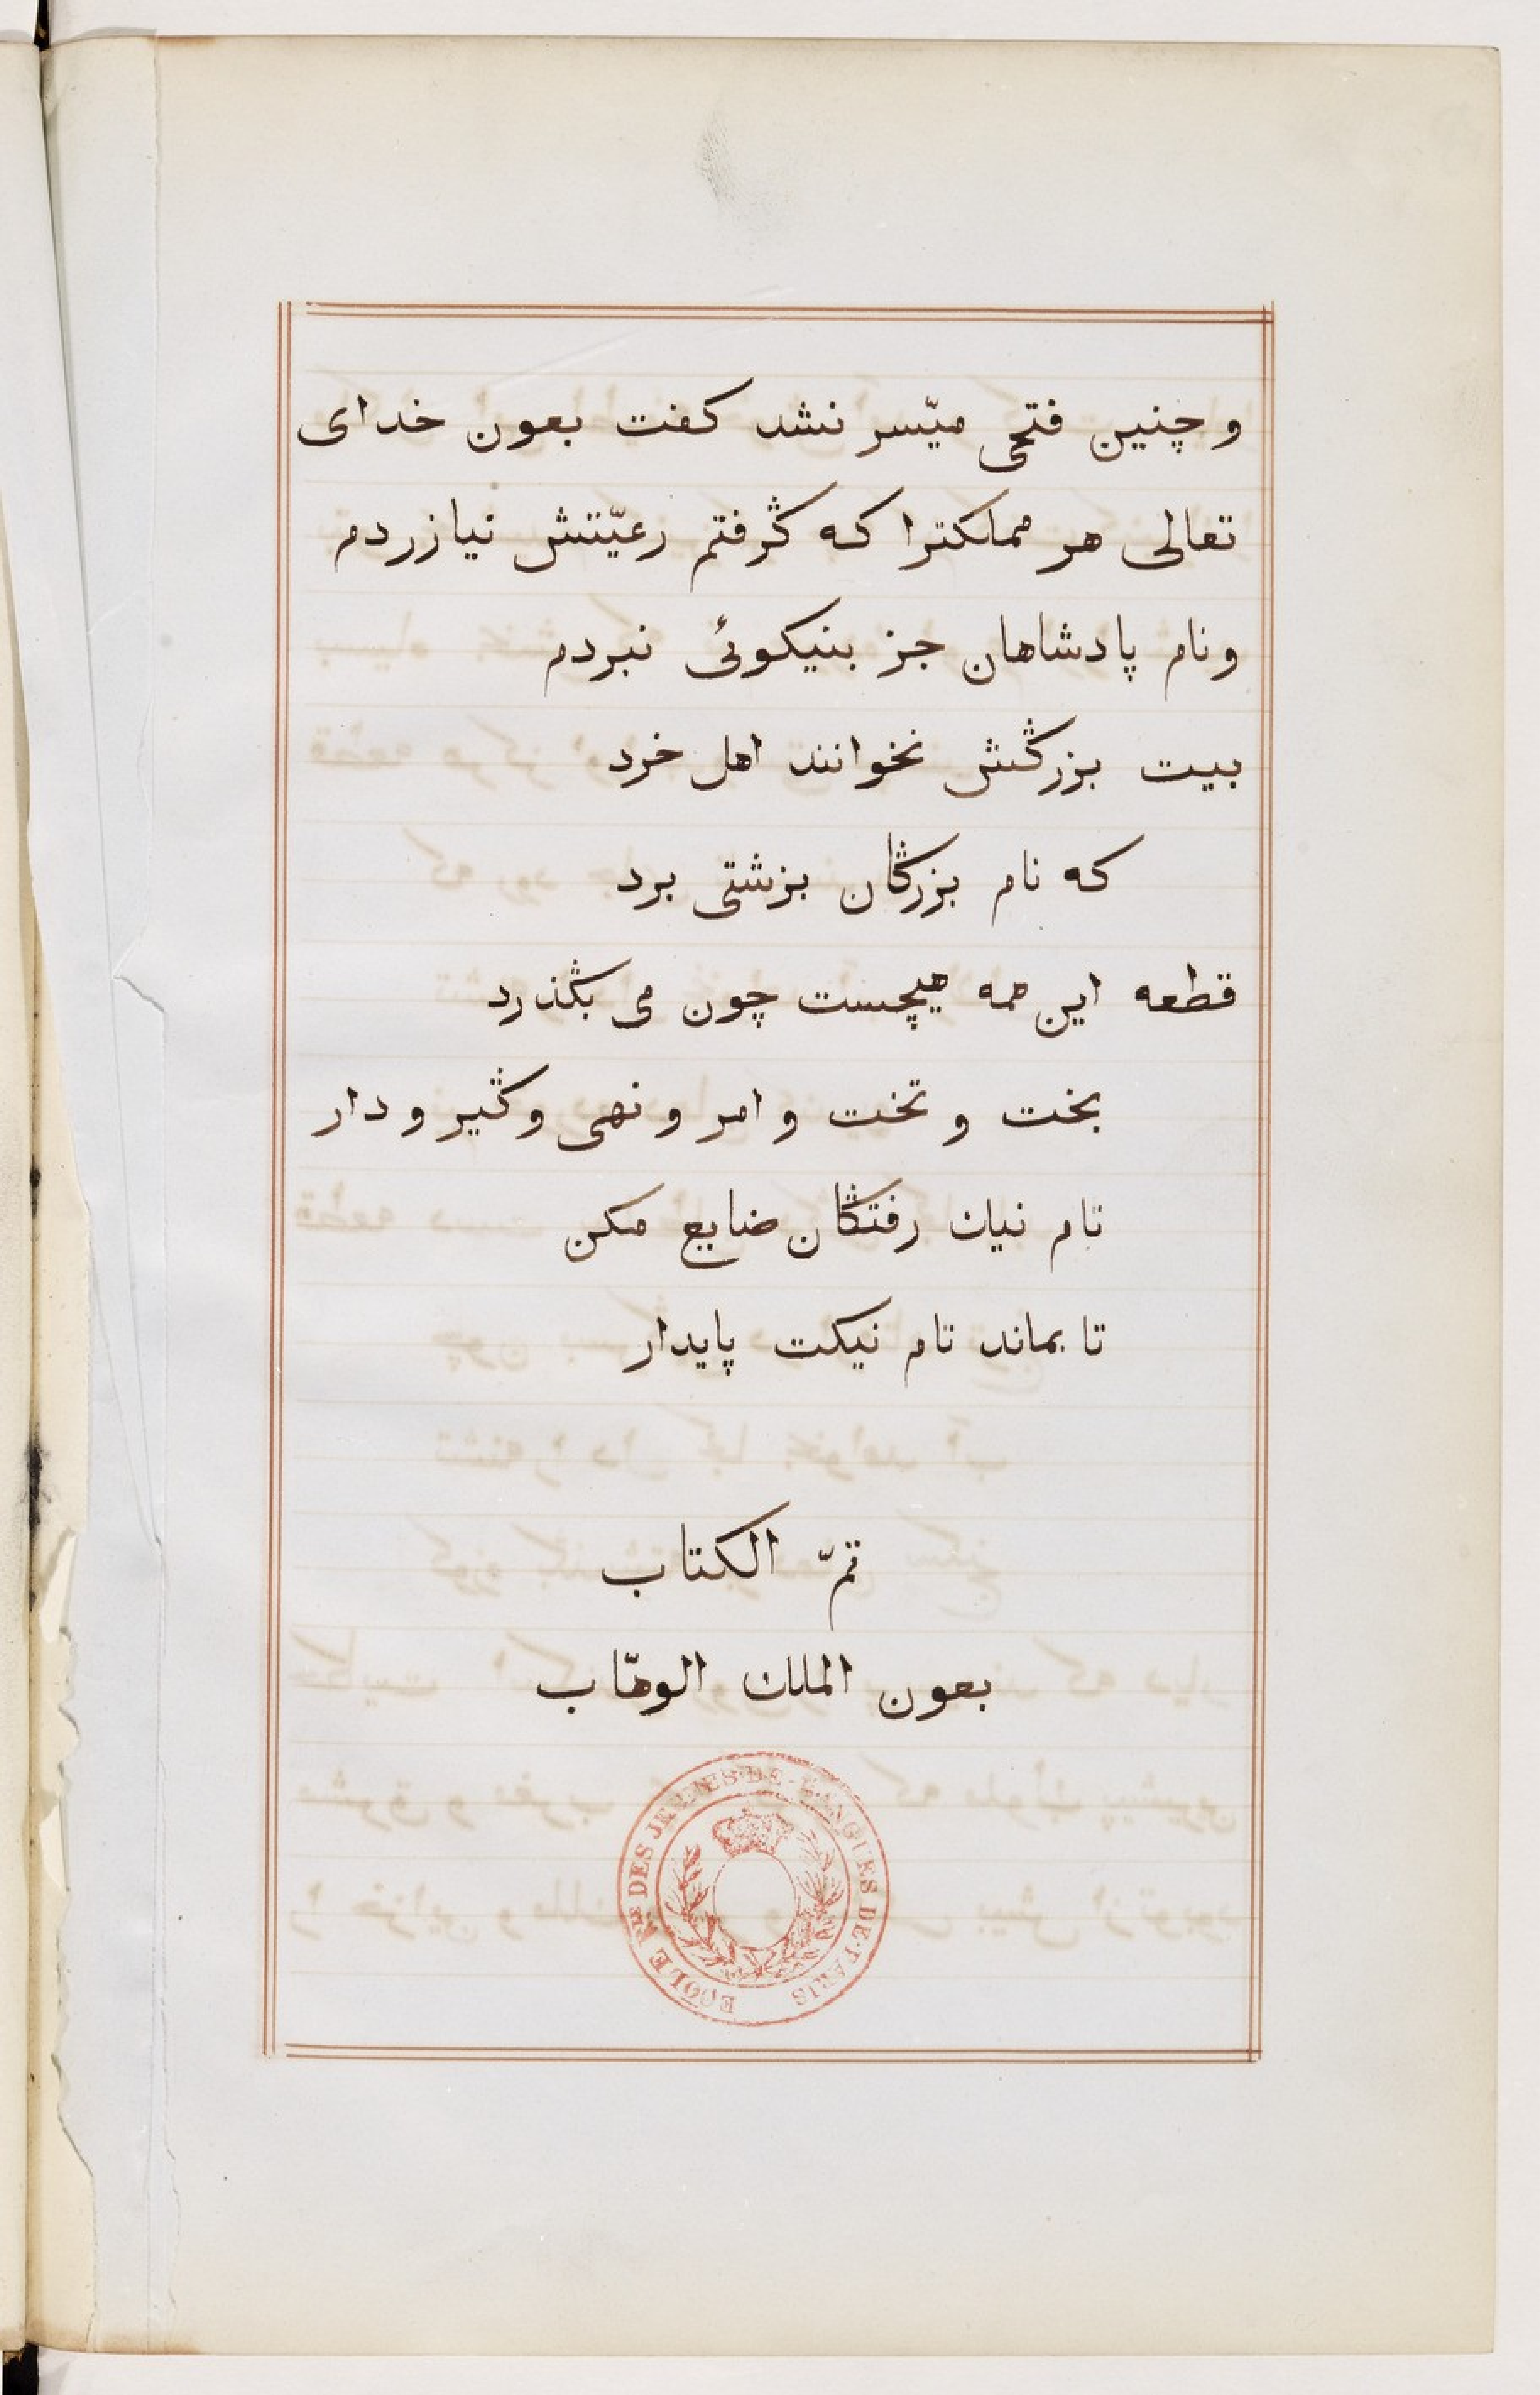 و چنین فتحی میّسر نشد کفت بعون خدای
تعالی هر مملکترا که ڭرفتم رعیّتش نیازردم
ونام پادشاهان جز بنیکوئی نبردم
بیت بزرڭش نخوانند اهل خرد
که نام بزرڭان بزشتی برد
قطعه این همه هیچست چون می بڭذرد
بخت و تخت و امر و نهی وڭیر و دار
نام نیك رفتڭان ضایع مکن
تا بماند نام نیکت پایدار
تمّ الکتاب
بعون الملك الوهّاب
ECOLE Rle DES JEUNES·DE·LANGUES DE·PARIS